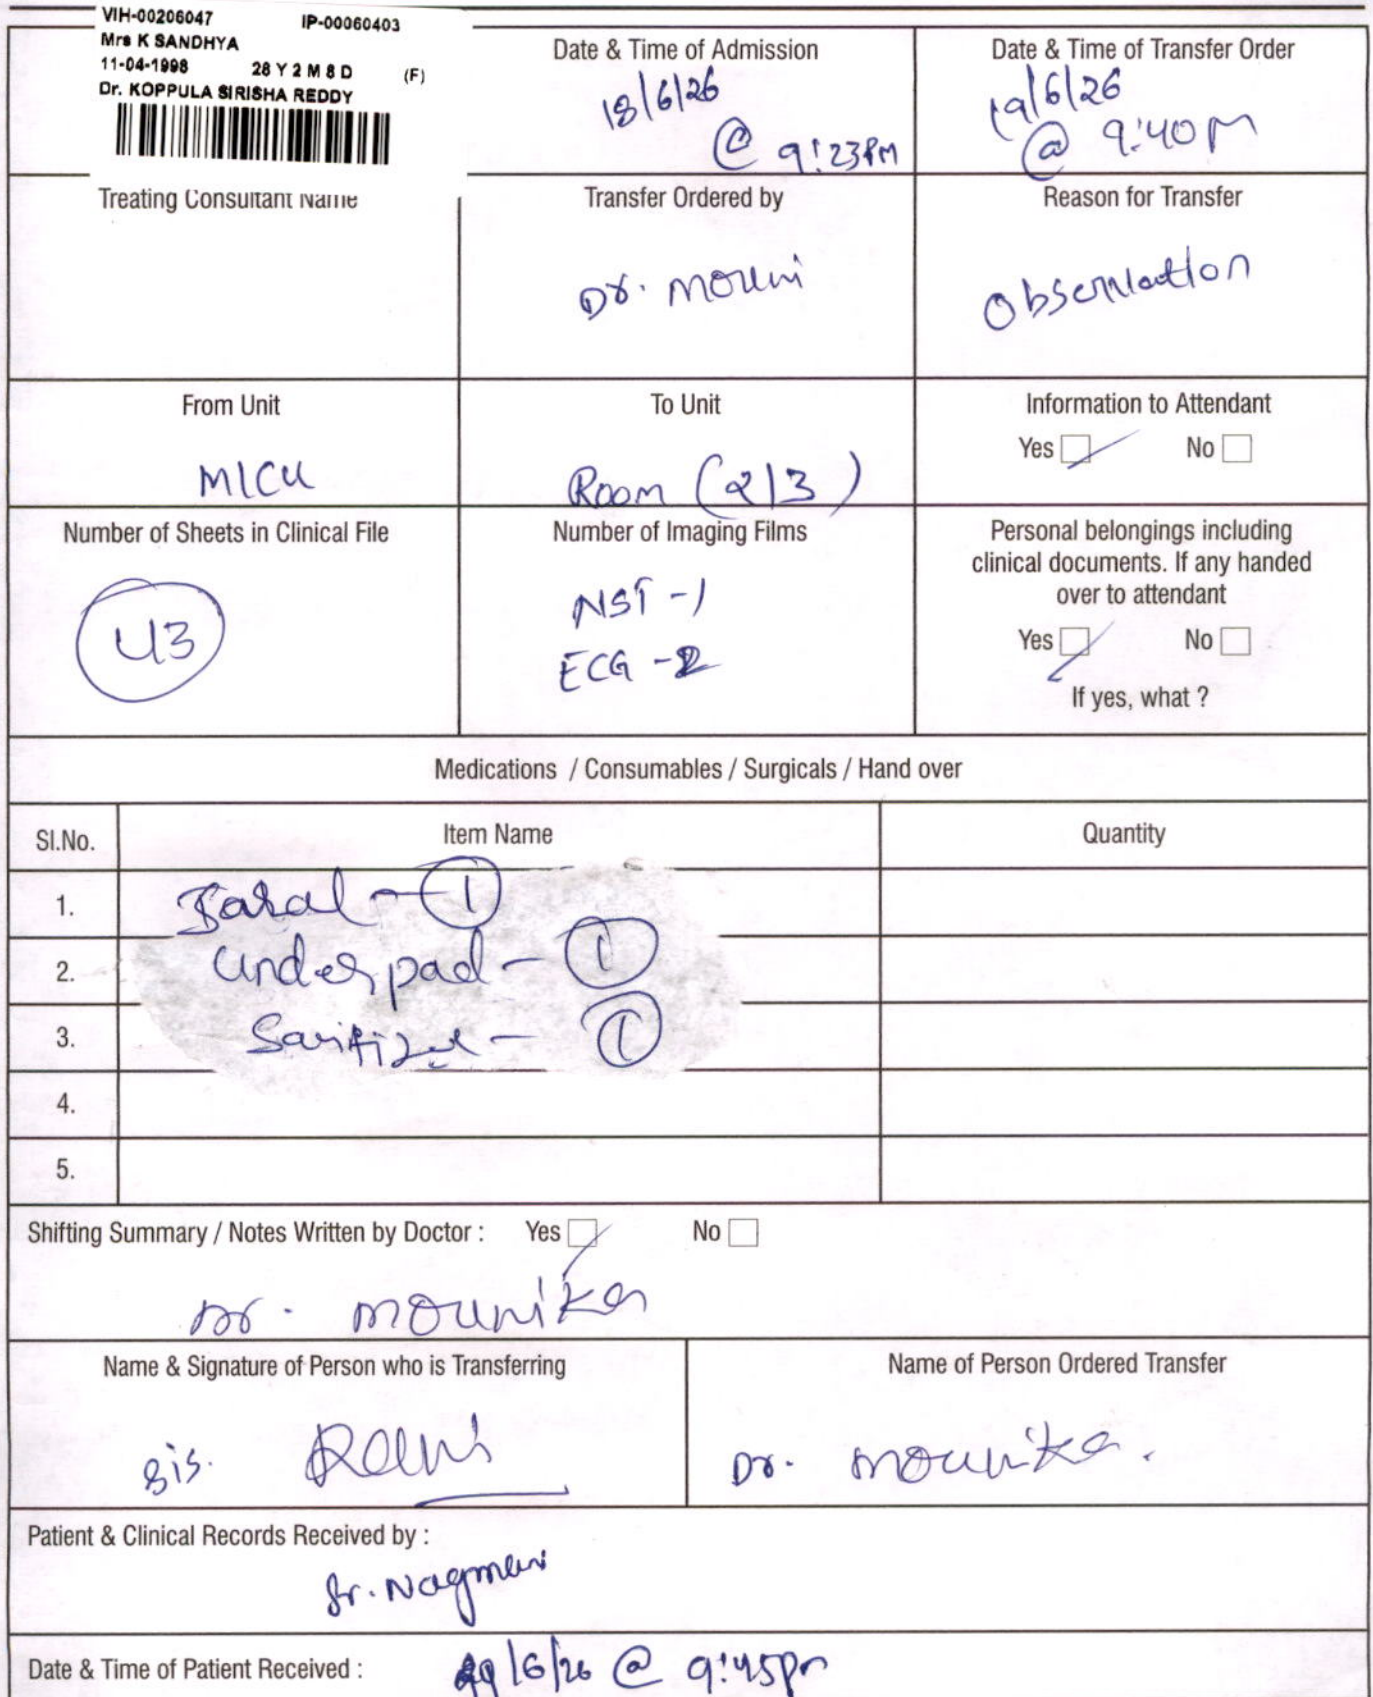 VIH-00206047 IP-00060403
Mrs K SANDHYA
11-04-1998 28 Y 2 M 8 D (F)
Dr. KOPPULA SIRISHA REDDY
Date & Time of Admission
18/6/26
@ 9:23PM
Date & Time of Transfer Order
19/6/26
@ 9:40PM
Treating Consultant Name
Transfer Ordered by
Dr. Mouni
Reason for Transfer
Observation
From Unit
MICU
To Unit
Room (213)
Information to Attendant
Yes No
Number of Sheets in Clinical File
43
Number of Imaging Films
NST -1
ECG -2
Personal belongings including
clinical documents. If any handed
over to attendant
Yes No
If yes, what ?
Medications / Consumables / Surgicals / Hand over
Sl.No. Item Name Quantity
1. - 1
2. underpad - 1
3. Sanitizer - 1
4.
5.
Shifting Summary / Notes Written by Doctor : Yes No
Dr. Mounika
Name & Signature of Person who is Transferring
sis. Rani
Name of Person Ordered Transfer
Dr. Mounika.
Patient & Clinical Records Received by :
Sr. Nagmani
Date & Time of Patient Received : 19/6/26 @ 9:45pm